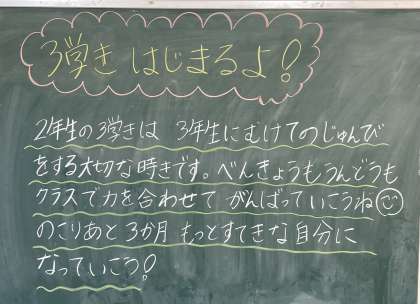 3学き はじまるよ!
2年生の3学きは 3年生にむけてのじゅんび
をする大切な時きです。べんきょうもうんどうも
クラスで力を合わせて がんばっていこうね
のこりあと3か月 もっとすてきな自分に
なっていこう!